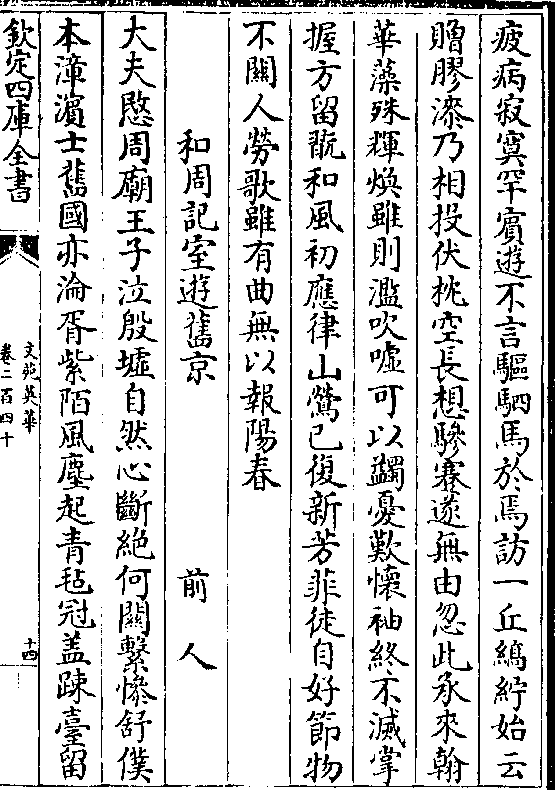 疲病寂寞罕賓遊不言驅駟馬於焉訪一丘縞紵始云
贈膠漆乃相投伏枕空長想驂蹇遂無由忽此承來翰
華藻殊輝煥雖則濫吹噓可以蠲憂歎懷袖終不滅掌
握方留翫和風初應律山鶯已復新芳菲徒自好節物
不關人勞歌雖有曲無以報陽春
和周記室遊舊京 前人
大夫愍周廟王子泣殷墟自然心斷絕何關繫慘舒僕
本漳濵士舊國亦淪胥紫陌風塵起青𣰽冠盖踈臺留
欽定四庫全書
文苑英華
卷二百四十
十四